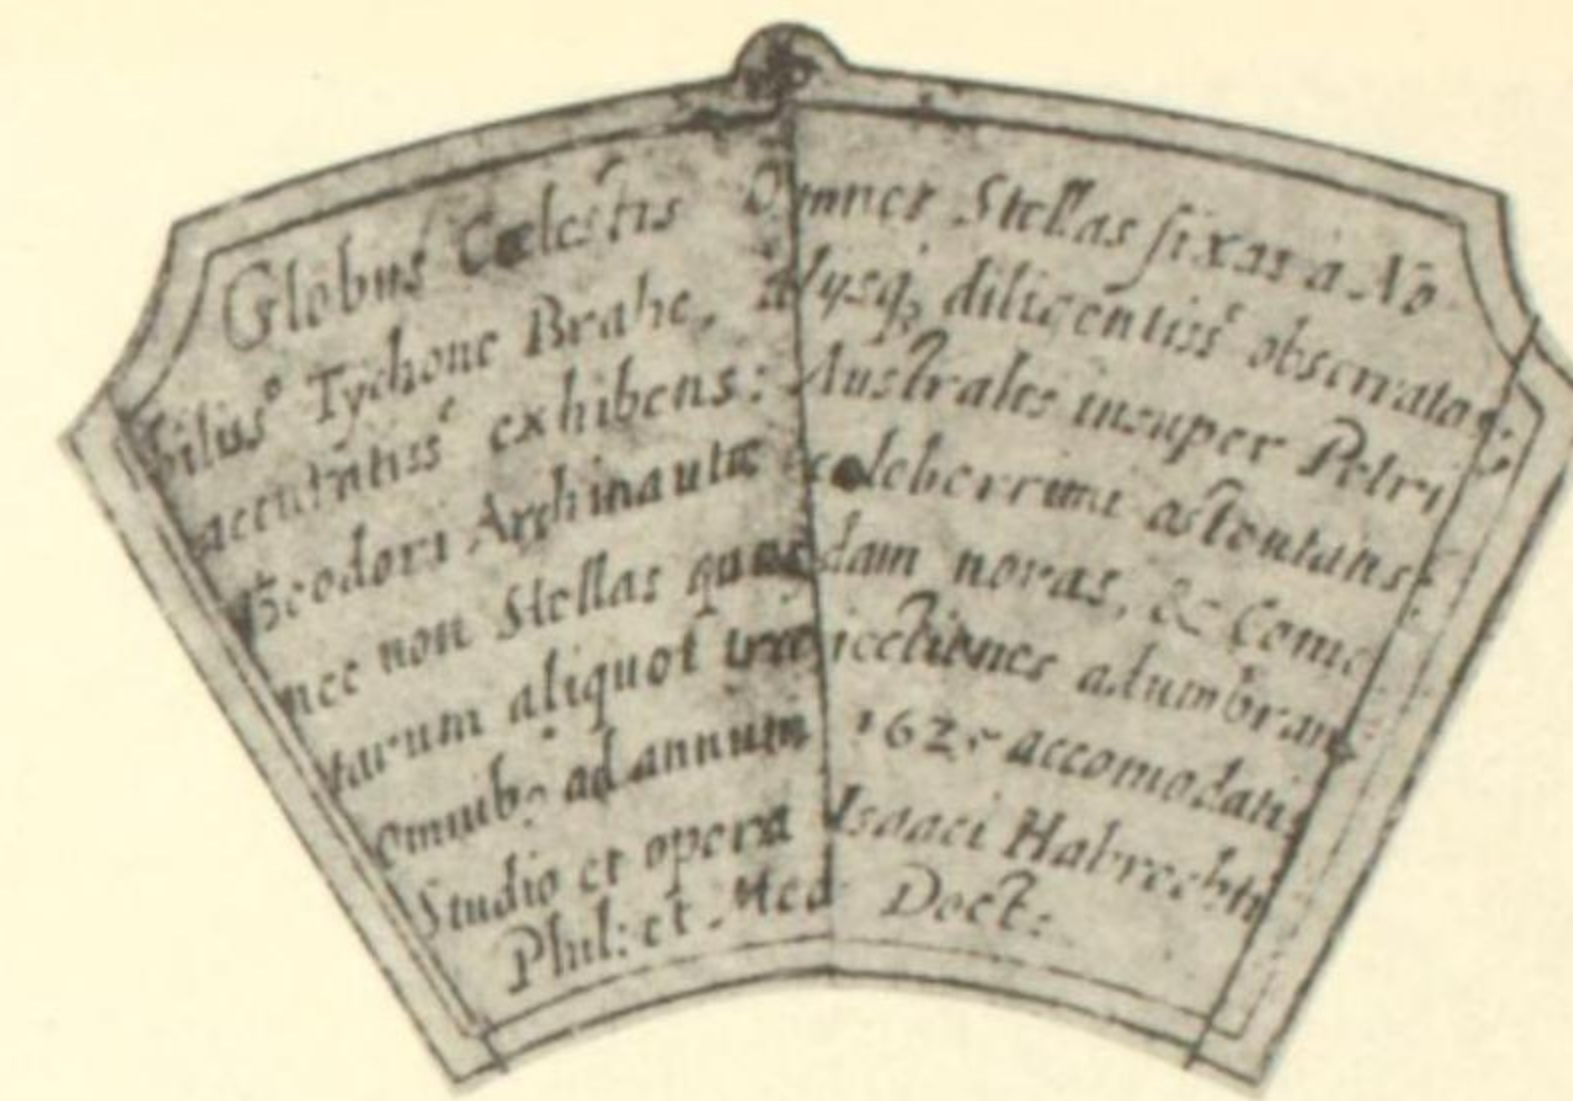 Globus Cœlestis Omnes Stellas fixas a No
biliss.º Tychone Brahe, alijsq, diligentissᵉ observatas:
accuratissᵉ exhibens: Australes insuper Petri
Theodori Archinautæ celeberrimi astentans:
nec non Stellas quasdam novas, & Come
tarum aliquot traiectiones adumbrans
omnib9 ad annum 1625 accomodatis
Studio et opera Isaaci Habrechti
Phil: et Med Doct: